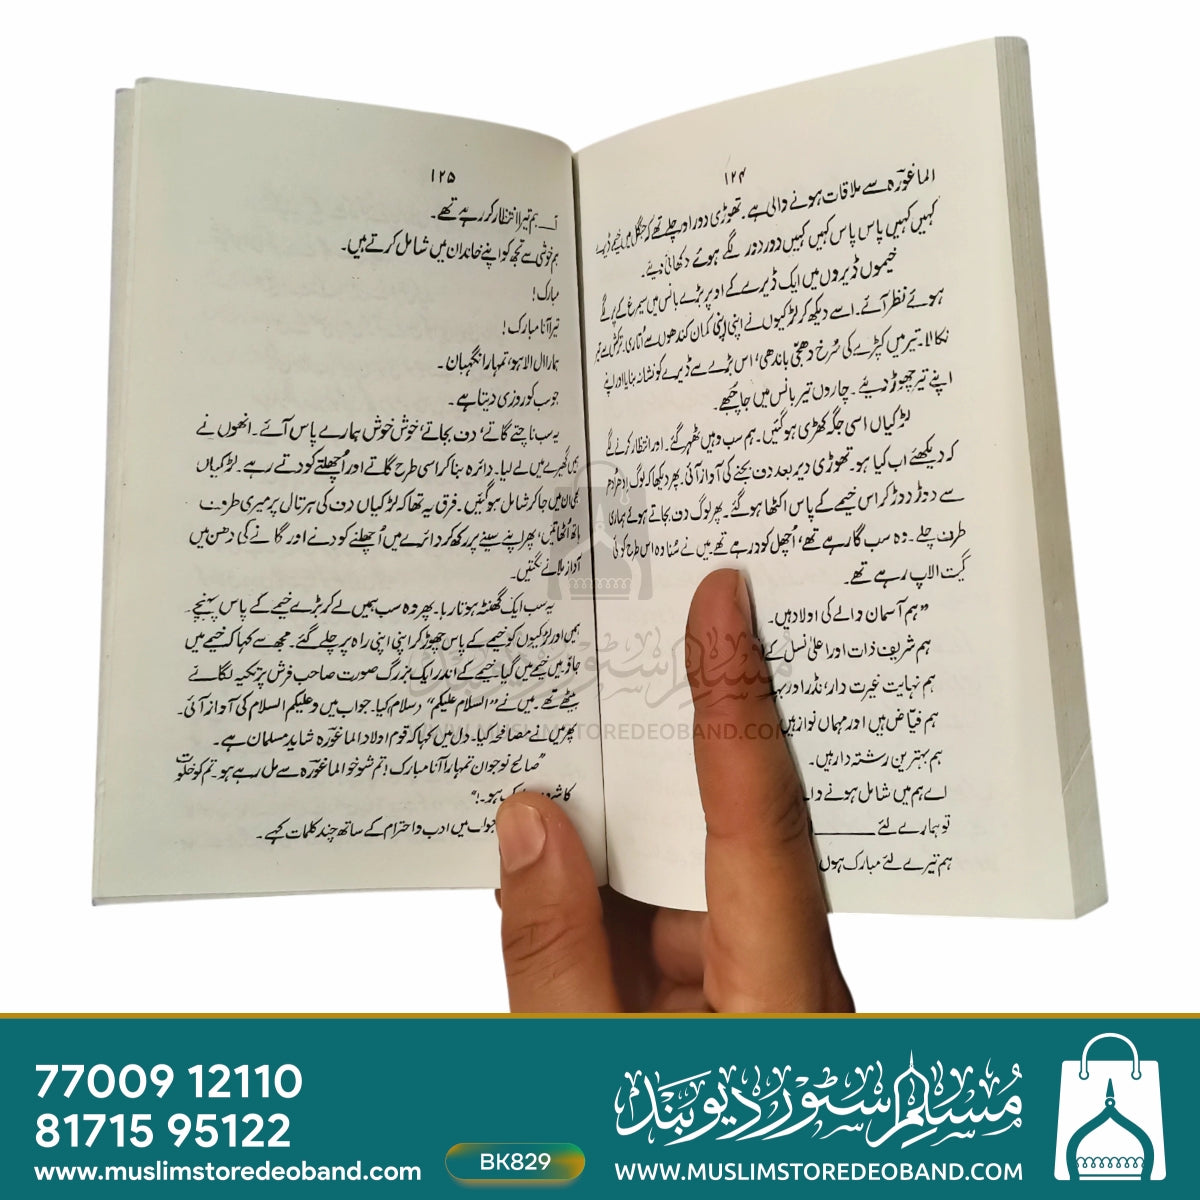 ۱۲۴
الماغورہ سے ملاقات ہونے والی ہے۔ تھوڑی دور اور چلے تھے کہ جنگل میں خیمے ڈیرے
کہیں کہیں پاس پاس کہیں کہیں دور دور لگے ہوئے دکھائی دیئے۔
خیموں ڈیروں میں ایک ڈیرے کے اوپر بڑے بانس میں سیمرغ کے پر لگے
ہوئے نظر آئے۔ اسے دیکھ کر لڑکیوں نے اپنی اپنی کمان کندھوں سے اُتاری۔ ترکش سے تیر
نکالا۔ تیر میں کپڑے کی سُرخ دھجی باندھی، اس بڑے سے ڈیرے کو نشانہ بنایا اور اپنے
اپنے تیر چھوڑ دیئے۔ چاروں تیر بانس میں جا چُبھے۔
لڑکیاں اسی جگہ کھڑی ہو گئیں۔ ہم سب وہیں ٹھہر گئے۔ اور انتظار کرنے لگے
کہ دیکھئے اب کیا ہو۔ تھوڑی دیر بعد دف بجنے کی آواز آئی۔ پھر دیکھا کہ لوگ اِدھر اُدھر
سے دوڑ دوڑ کر اس خیمے کے پاس اکٹھا ہو گئے۔ پھر لوگ دف بجاتے ہوئے ہماری
طرف چلے۔ وہ سب گا رہے تھے، اُچھل کود رہے تھے۔ میں نے سُنا وہ اس طرح کوئی
گیت الاپ رہے تھے۔
"ہم آسمان والے کی اولاد ہیں۔
ہم شریف ذات اور اعلیٰ نسل کے
ہم نہایت غیرت دار، نڈر اور بہا
ہم فیاض ہیں اور مہمان نواز ہیں
ہم بہترین رشتہ دار ہیں۔
اے ہم میں شامل ہونے وا
تو ہمارے لئے ــــــــ
ہم تیرے لئے مبارک ہوں
۱۲۵
آ۔ ہم تیرا انتظار کر رہے تھے۔
ہم خوشی سے تجھ کو اپنے خاندان میں شامل کرتے ہیں۔
مبارک!
تیرا آنا مبارک!
ہمارا ال الاہو، تمہارا نگہبان۔
جو سب کو روزی دیتا ہے۔
یہ سب ناچتے گاتے، دف بجاتے، خوش خوش ہمارے پاس آئے۔ انھوں نے
ہمیں گھیرے میں لے لیا۔ دائرہ بنا کر اسی طرح گاتے اور اُچھلتے کودتے رہے۔ لڑکیاں
بھی ان میں جا کر شامل ہو گئیں۔ فرق یہ تھا کہ لڑکیاں دف کی ہر تال پر میری طرف
ہاتھ اُٹھاتیں، پھر اپنے سینے پر رکھ کر دائرے میں اُچھلنے کودنے اور گانے کی دھن میں
آواز ملانے لگتیں۔
یہ سب ایک گھنٹہ ہوتا رہا۔ پھر وہ سب ہمیں لے کر بڑے خیمے کے پاس پہنچے۔
ہمیں اور لڑکیوں کو خیمے کے پاس چھوڑ کر اپنی اپنی راہ پر چلے گئے۔ مجھ سے کہا کہ خیمے میں
جاؤ۔ میں خیمے میں گیا۔ خیمے کے اندر ایک بزرگ صورت صاحب فرش پر تکیہ لگائے
بیٹھے تھے۔ میں نے "السلام علیکم" سلام کیا۔ جواب میں وعلیکم السلام کی آواز آئی۔
پھر میں نے مصافحہ کیا۔ دل میں کہا کہ قوم اولاد الماغورہ شاید مسلمان ہے۔
"صالح نوجوان تمہارا آنا مبارک! تم شوخو الماغورہ سے مل رہے ہو۔ تم کو خلوت
کا شر ہو۔!"
جواب میں ادب و احترام کے ساتھ چند کلمات کہے۔
مسلم سٹور دیوبند
WWW.MUSLIMSTOREDEOBAND.COM
77009 12110
81715 95122
www.muslimstoredeoband.com
BK829
مسلم سٹور دیوبند
WWW.MUSLIMSTOREDEOBAND.COM